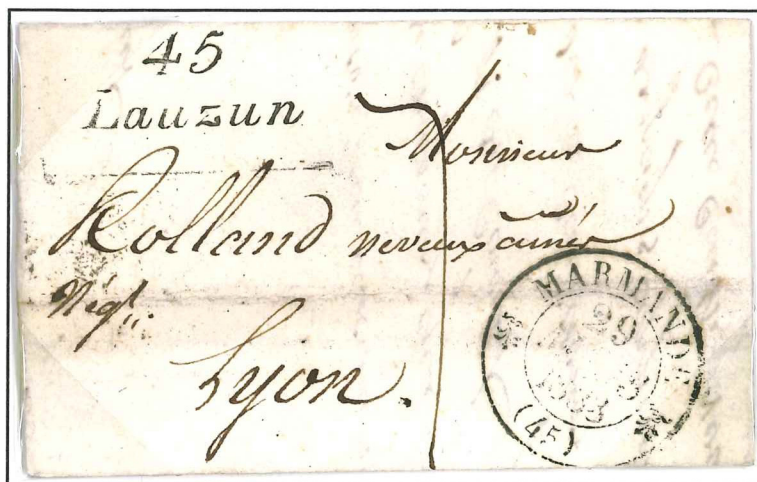 45
Lauzun
Monsieur
Rolland neveux ainés
Négt.
Lyon.
MARMANDE
29
1833
(45)